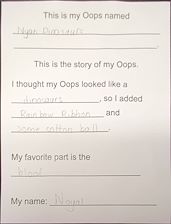 This is my Oops named
Nyan Dinosaurs
This is the story of my Oops.
I thought my Oops looked like a
dinosaurs, so I added
Rainbow Ribbon and
some cotton ball.
My favorite part is the
My name: Noyal